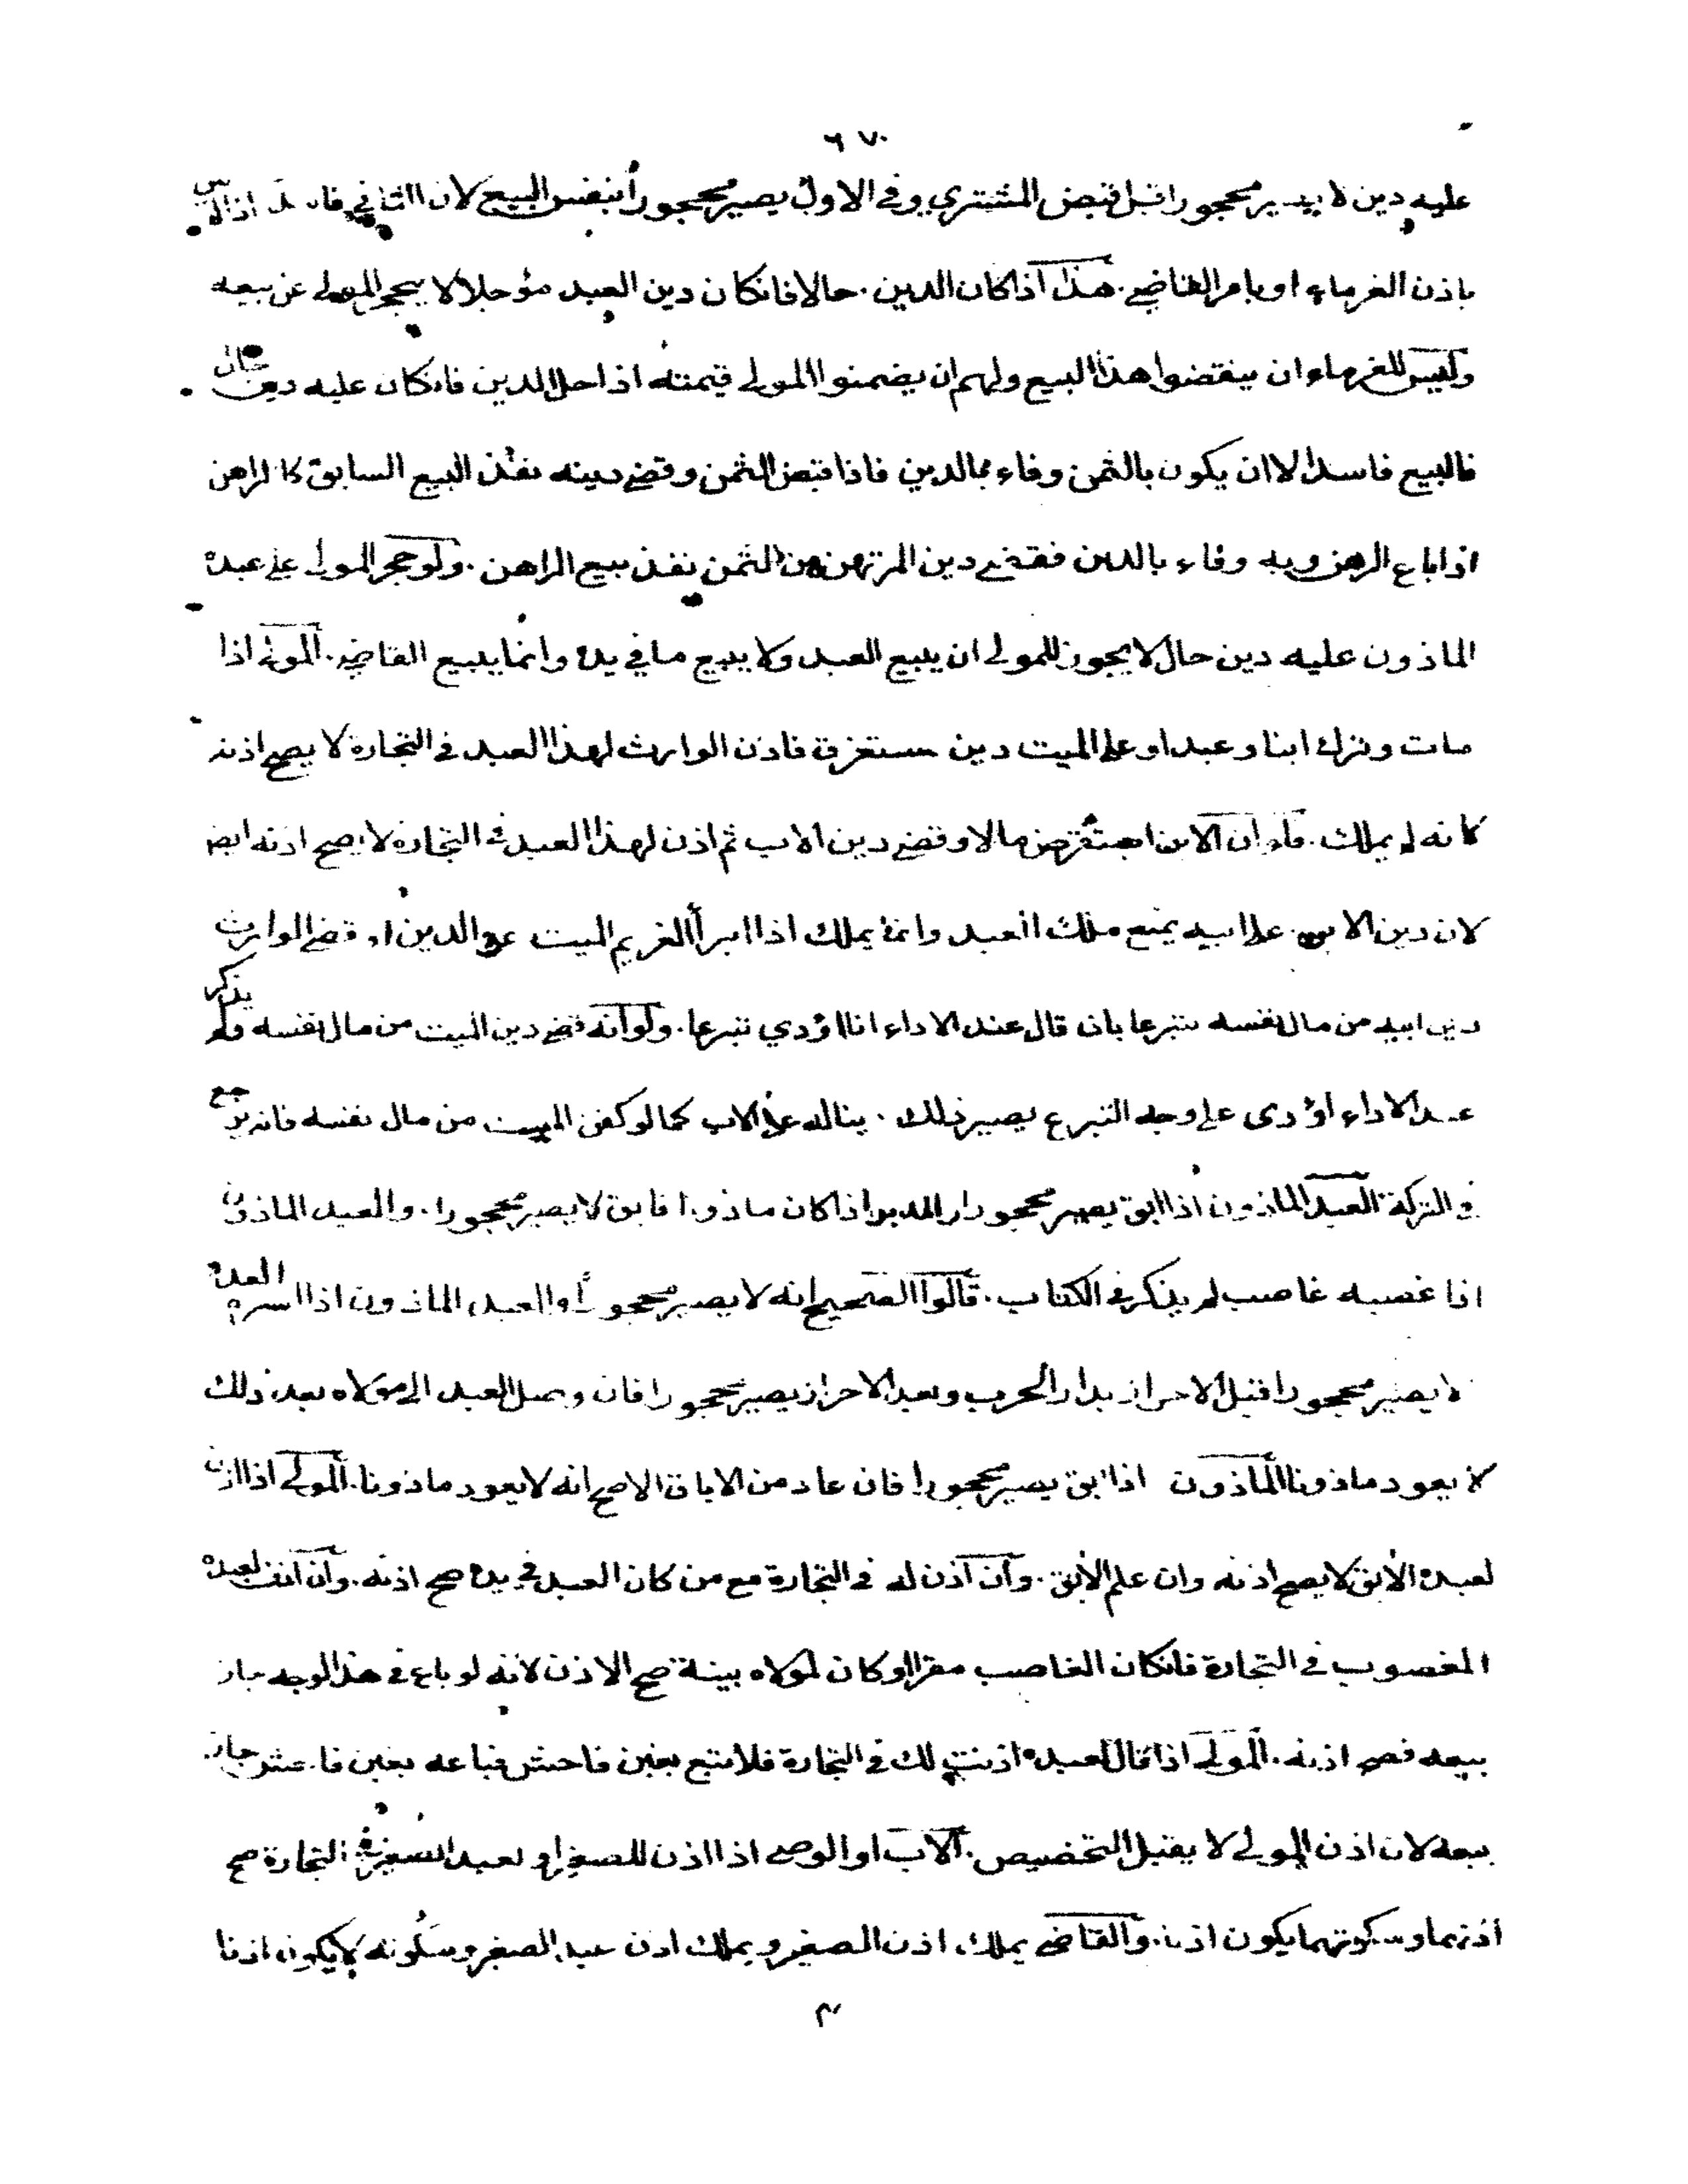 ٦٧٠
عليه دين لا يصير محجورا قبل قبض المشتري وفي الاول يصير محجورا بنفس البيع لان الثاني فاسد اذا ليس
باذن الغرماء او بامر القاضي. هذا اذا كان الدين حالا فانكان دين العبد مؤجلا لا يحجر المولى عن بيعه
وليس للغرماء ان ينقضوا هذا البيع ولهم ان يضمنوا المولى قيمته اذا حل الدين فانكان عليه دين حال
فالبيع فاسد الا ان يكون بالثمن وفاء بالدين فاذا قبض الثمن وقضى دينه نفذ البيع السابق كالراهن
اذا باع الرهن وبه وفاء بالدين فقضى دين المرتهن من الثمن نفذ بيع الراهن. ولو حجر المولى على عبده
الماذون عليه دين حال لا يجوز للمولى ان يبيع العبد ولا يبيع ما في يده وانما يبيع القاضي. المولى اذا
مات وترك ابنا وعبدا وعلى الميت دين مستغرق فاذن الوارث لهذا العبد في التجارة لا يصح اذنه
لانه لم يملك. فلو ان الابن استقرض مالا وقضى دين الاب ثم اذن لهذا العبد في التجارة لا يصح اذنه ايضا
لان دين الابن على ابيه يمنع ملك العبد وانما يملك اذا ابرأ الغريم الميت عن الدين او قضى الوارث
دين ابيه من مال نفسه تبرعا بان قال عند الاداء انا اؤدي تبرعا. ولو انه قضى دين الميت من مال نفسه ولم يذكر
عند الاداء اؤدى على وجه التبرع يصير ذلك دينا له على الاب كما لو كفن الميت من مال نفسه فانه يرجع
في التركة العبد الماذون اذا ابق يصير محجورا والمدبر اذا كان ماذونا فابق لا يصير محجورا. والعبد الماذون
اذا غصبه غاصب لم يذكر في الكتاب. قالوا الصحيح انه لا يصير محجورا والعبد الماذون اذا اسره العدو
لا يصير محجورا قبل الاحراز بدار الحرب وبعد الاحراز يصير محجورا فان وصل العبد الى مولاه بعد ذلك
لا يعود ماذونا الماذون اذا ابق يصير محجورا فان عاد من الاباق الاصح انه لا يعود ماذونا. المولى اذا اذن
لعبده الأبق لا يصح اذنه وان علم الأبق. وان اذن له في التجارة مع من كان العبد في يده صح اذنه. وان اذن لعبده
المغصوب في التجارة فانكان الغاصب مقرا او كان لمولاه بينة صح الاذن لانه لو باع في هذا الوجه جاز
بيعه فصح اذنه. المولى اذا قال لعبده اذنت لك في التجارة فلا تبع بغبن فاحش فباعه بغبن فاحش جاز
بيعه لان اذن المولى لا يقبل التخصيص. الاب او الوصي اذا اذن للصغير او لعبد الصغير في التجارة صح
اذنهما وسكوتهما يكون اذنا. والقاضي يملك اذن الصغير ويملك اذن عبد الصغير وسكوته لا يكون اذنا